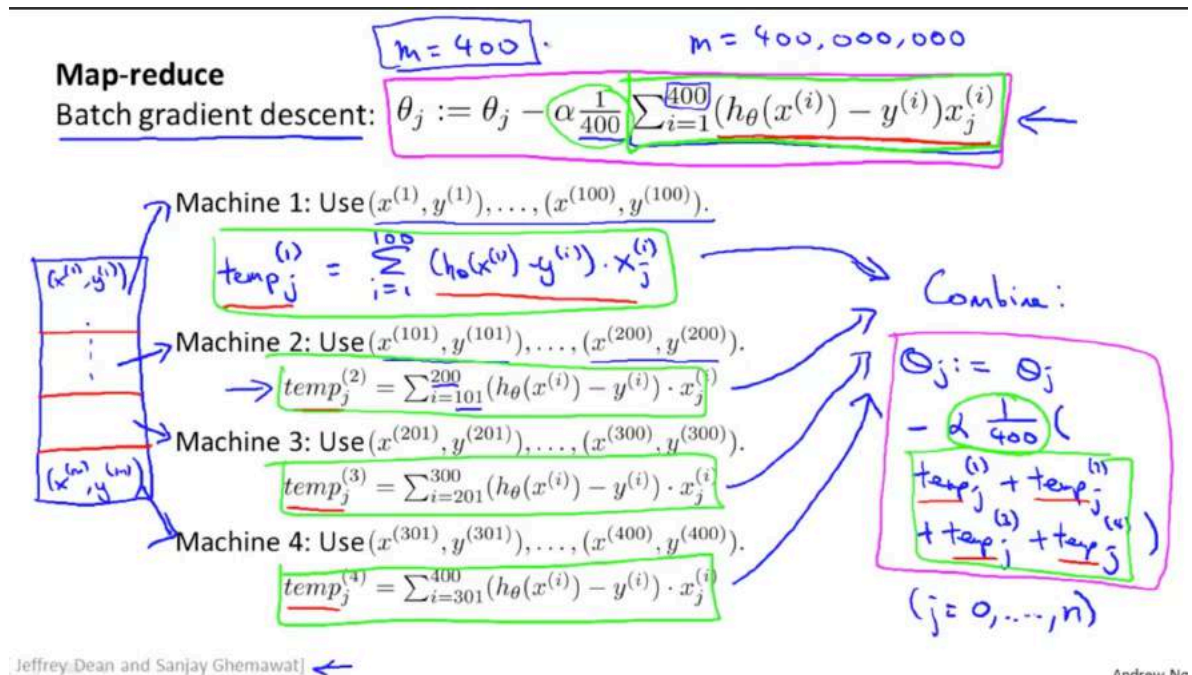 m = 400 .
m = 400,000,000
Map-reduce
Batch gradient descent: θ_j := θ_j − α 1/400 ∑_{i=1}^{400} (h_θ(x^{(i)}) − y^{(i)}) x_j^{(i)}
Machine 1: Use (x^{(1)}, y^{(1)}), . . . , (x^{(100)}, y^{(100)}).
temp_j^{(1)} = ∑_{i=1}^{100} (h_θ(x^{(i)}) - y^{(i)}) · x_j^{(i)}
(x^{(1)}, y^{(1)})
Machine 2: Use (x^{(101)}, y^{(101)}), . . . , (x^{(200)}, y^{(200)}).
temp_j^{(2)} = ∑_{i=101}^{200} (h_θ(x^{(i)}) − y^{(i)}) · x_j^{(i)}
Machine 3: Use (x^{(201)}, y^{(201)}), . . . , (x^{(300)}, y^{(300)}).
temp_j^{(3)} = ∑_{i=201}^{300} (h_θ(x^{(i)}) − y^{(i)}) · x_j^{(i)}
(x^{(m)}, y^{(m)})
Machine 4: Use (x^{(301)}, y^{(301)}), . . . , (x^{(400)}, y^{(400)}).
temp_j^{(4)} = ∑_{i=301}^{400} (h_θ(x^{(i)}) − y^{(i)}) · x_j^{(i)}
Combine:
θ_j := θ_j
− α 1/400 (
temp_j^{(1)} + temp_j
+ temp_j + temp_j^{(4)} )
(j = 0, ...., n)
Jeffrey Dean and Sanjay Ghemawat]
Andrew Ng